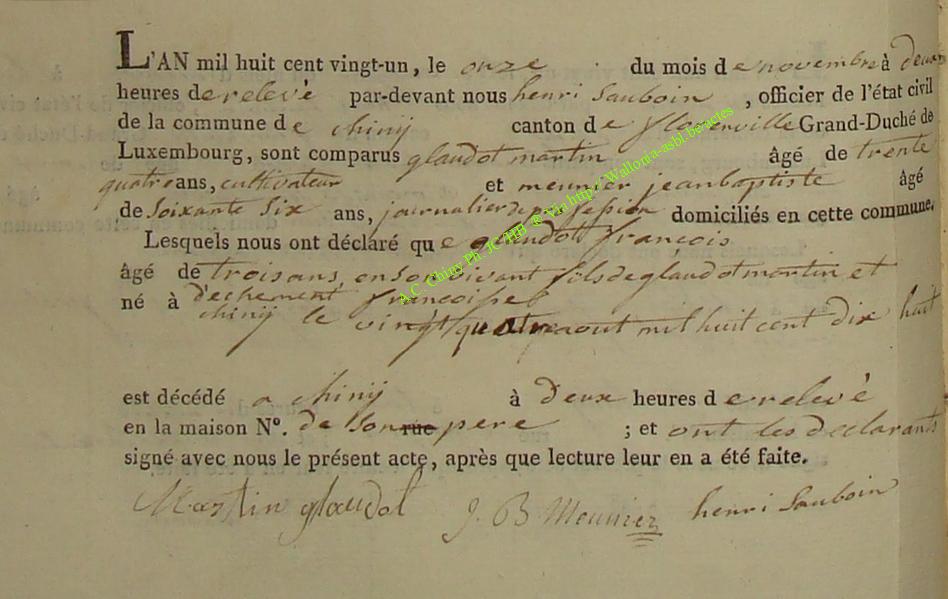 L'AN mil huit cent vingt-un, le onze du mois de novembre à deux
heures de relevè par-devant nous henri Sauboin , officier de l'état civil
de la commune de chinÿ canton de florenville Grand-Duché de
Luxembourg, sont comparus glaudot martin âgé de trente
quatre ans, cultivateur et meunier jeanbaptiste âgé
de Soixante Six ans, journalier de profession domiciliés en cette commune.
Lesquels nous ont déclaré que glaudot francois
âgé de trois ans, en son vivant fils de glaudot martin et
dechement francoise
né à chinÿ le vingt quatre aout mil huit cent dix huit
est décédé a chinÿ à deux heures de relevè
en la maison Nº. de Son rue pere ; et ont les declarants
signé avec nous le présent acte, après que lecture leur en a été faite.
Martin glaudot J. B Meunier henri Sauboin
A.C. Chiny Ph. JC HB @ Via http://Wallonia-asbl.be-actes